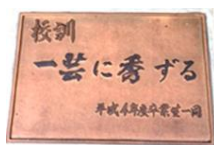 校訓
一芸に秀ずる
平成4年度卒業生一同